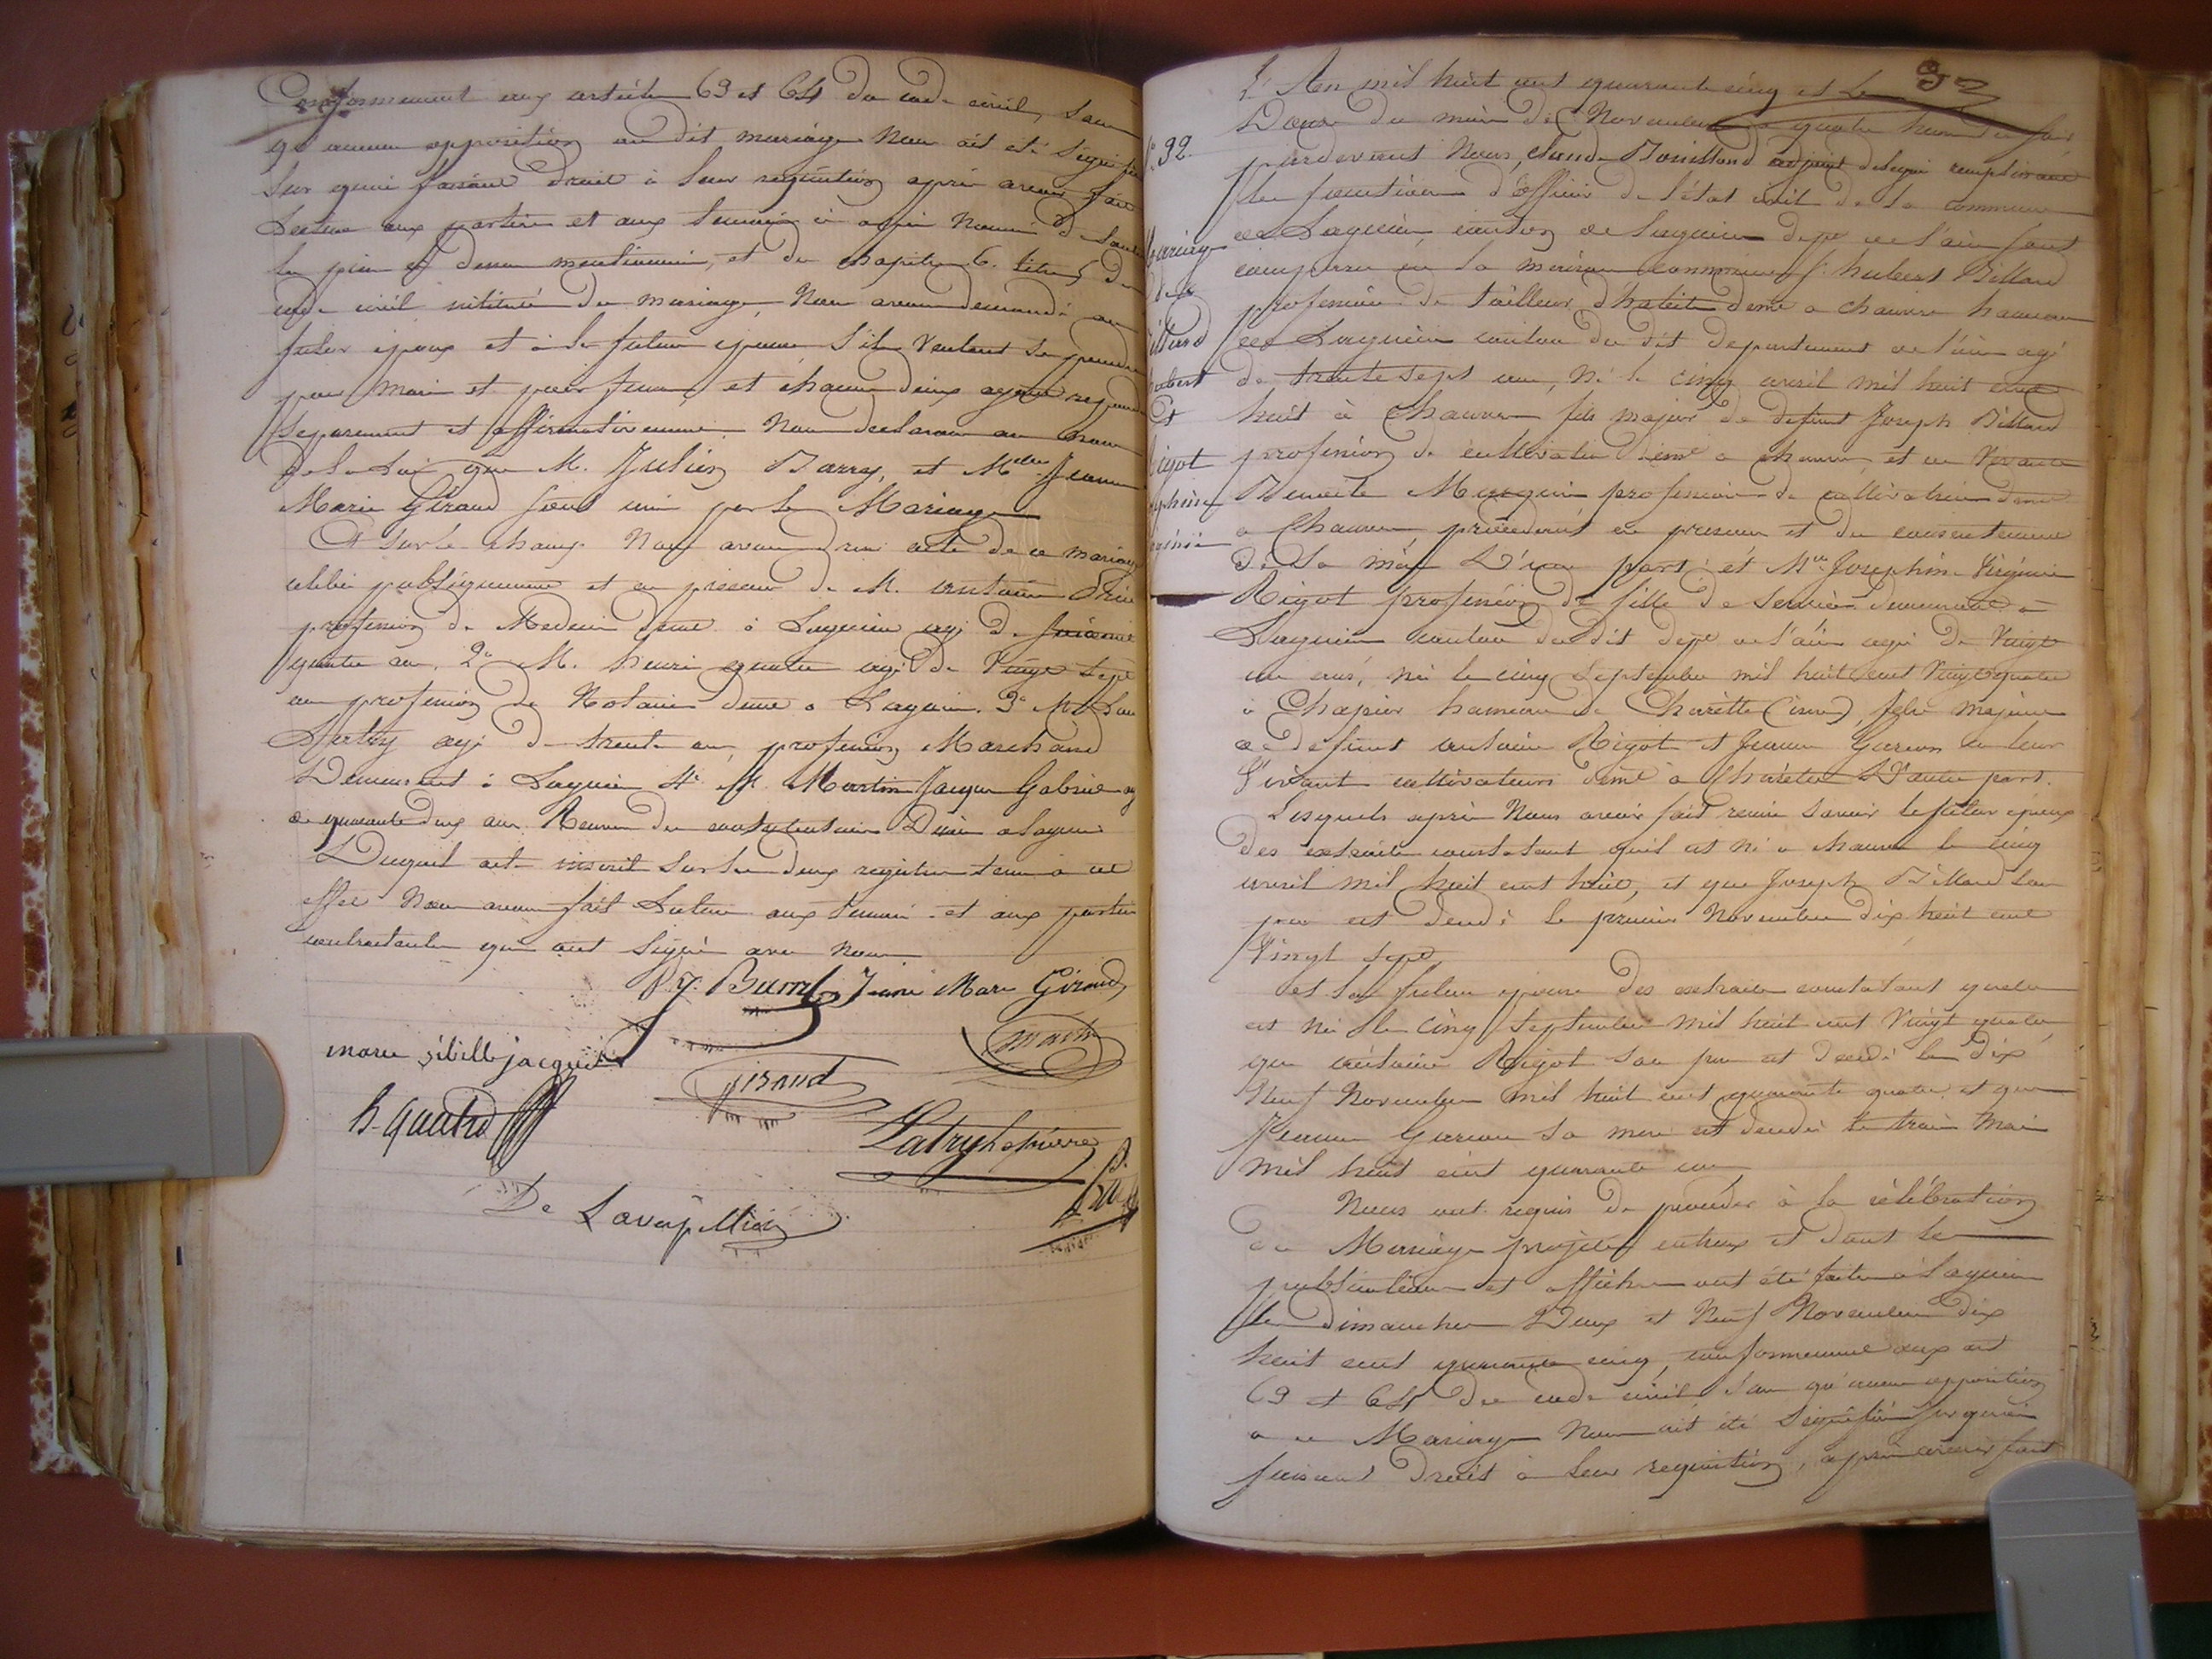 Conformement aux articles 63 et 64 du code civil, sans
qu aucune opposition au dit mariage Nous ait été signifiée
Sur quoi faisant droit à leur requisition après avoir fait
Lecture aux parties et aux temoins ci après Nommés de toutes
les pieces et dessus mentionnées, et du chapitre 6. titre 5 du
code civil intitulé du mariage, Nous avons demandé au
futur epoux et à la future epouse s'ils Veulent se prendre
pour Mari et pour femme, et chacun deux ayant repondu
separement et affirmativement Nous declarons au nom
de la Loi que M. Julien Barry, et Mlle Jeanne
Marie Giraud sont unis par le Mariage
Et sur le champ Nous avons dressé acte de ce mariage
célébré publiquement et en presence de M. antoine
profession de Medecin demt à Lagnieu agé de soixante
quatre ans. 2° M. henri quatre agé de Vingt sept
ans profession de Notaire demt a Lagnieu. 3° M.
agé de trente ans, profession Marchand
Demeurant à Lagnieu 4° M. Martin Jacques Gabriel agé
de quarante deux ans Receveur des contributions a Lagnieu
Duquel acte inscrit sur les deux registres tenus à cet
effet Nous avons fait Lecture aux temoins et aux parties
contractantes qui ont signé avec Nous
Jeanne Marie Giraud
marie sibille jacquier
Martin
giraud
h. quatre
De Lavaspillière
37
L'An mil huit cent quarante cinq et Le
Douze du mois de Novembre a quatre heures du soir
N° 32.
pardevant Nous, Claude Bouilland adjoint delegué remplissant
les fonctions d'officier de l'état civil de la commune
Mariage
de Lagnieu, canton de Lagnieu dept de l'ain sont
de
comparus en la maison commune hubert Billard
profession de tailleur d'habits demt a Chauvre hameau
Billard
de Lagnieu canton du dit departement de l'ain agé
hubert
de trente sept ans, Né le cinq avril mil huit cent
Et
huit à Chauvre fils majeur de defunt Joseph Billard
Rigot
profession de cultivateur demt a Chauvre, et en Vivante
Josephine
Benoite profession de cultivatrice demt
Virginie
a Chauvre, procédant en presence et du consentement
de Sa mère D'une part, et Mlle Josephine Virginie
Rigot profession de fille de service demeurant à
Lagnieu canton du dit dept de l'ain agée de Vingt
un ans, née le cinq Septembre mil huit cent Vingt quatre
à hameau de Charette (isere), fille majeure
de defunt antoine Rigot et Jeanne en leur
Vivant cultivateurs demt à Charette D'autre part.
Lesquels après Nous avoir fait remise savoir le futur epoux
des extraits constatant qu'il est né a chauvre le cinq
avril mil huit cent huit, et que Joseph Billard son
pere est decedé le premier Novembre dix huit cent
Vingt sept,
et la future epouse des extraits constatant quelle
est née le cinq Septembre mil huit cent Vingt quatre,
que antoine Rigot son pere est decedé le dix
Neuf Novembre mil huit cent quarante quatre et que
Jeanne sa mere est decedée le trois Mai
mil huit cent quarante un
Nous ont requis de proceder à la célébration
du Mariage projeté entreux et dont les
publications et affiches ont été faites à Lagnieu
les dimanches Deux et Neuf Novembre dix
huit cent quarante cinq, conformement aux art
63 et 64 du code civil, sans qu'aucune opposition
a ce Mariage Nous ait été Signifiée sur quoi
faisant droit à leur requisition, après avoir fait